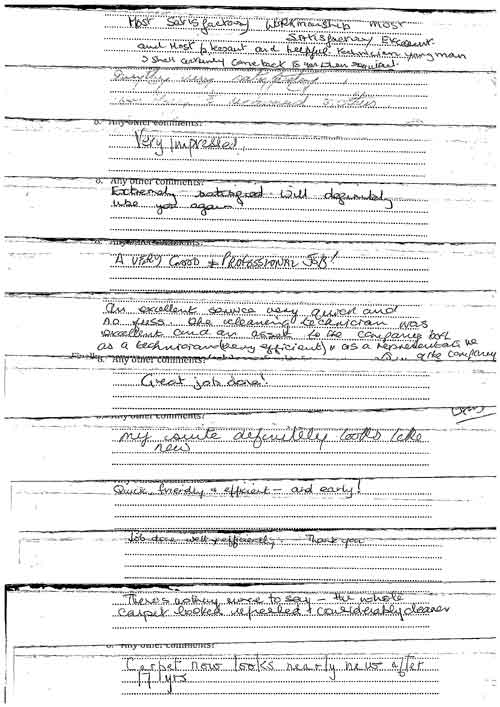 Most Satisfactory Workmanship most
Satisfactory Excellent.
and Most pleasant and helpful technician young man
I shall certainly come back to you when required.
Everything very satisfactory
to recommend
8. Any other comments:
Very Impressed!
8. Any other comments:
Extremely satisfied. Will definitely
use you again
A VERY GOOD & PROFESSIONAL JOB!
An excellent service very quick and
no fuss. The cleaning technician was
excellent and an asset to the company both
as a technician (being efficient) & as a representative
of the company
8. Any other comments:
Great job done!
Any other comments:
my suite definitely looks like
new
Quick, friendly & efficient - and early!
Job done well & efficiently. Thank you
There's nothing more to say - the whole
carpet looked refreshed & considerably cleaner
8. Any other comments:
Carpet now looks nearly new after
17 yrs